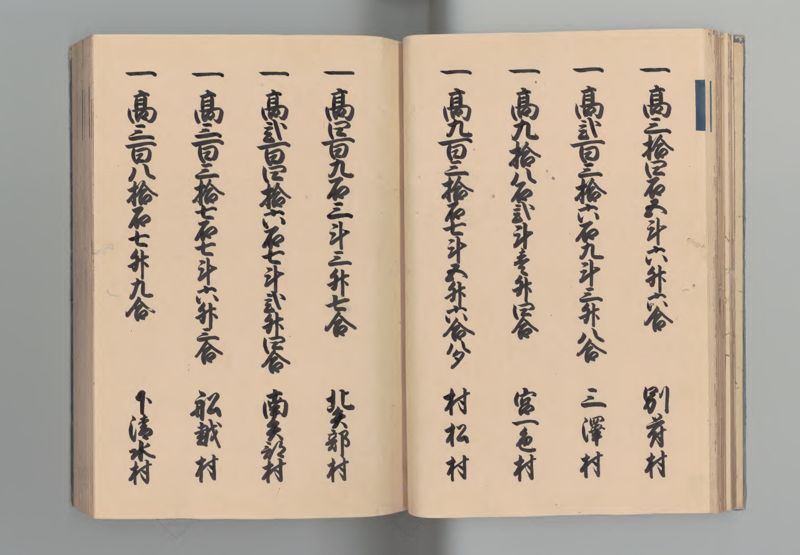 一 高三拾四石五斗六升六合 別符村
一 高弐百三拾六石九斗三升八合 三澤村
一 高九拾八石弐斗壱升四合 宮一色村
一 高九百三拾石七斗五升六合八夕 村松村
一 高四百九石三斗三升七合 北矢部村
一 高弐百四拾六石七斗弐升四合 南矢部村
一 高三百三拾七石七斗六升三合 船越村
一 高三百八拾石七升九合 下清水村